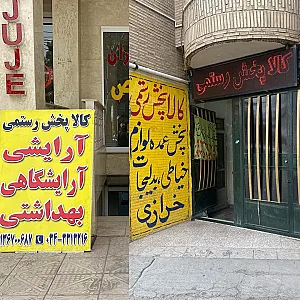 JUJE
کالا پخش رستمی
آرایشی
آرایشگاهی
بهداشتی
کالا پخش رستمی
پخش عمده لوازم
خیاطی بدلیجات
خرازی
کالا پخش رستمی